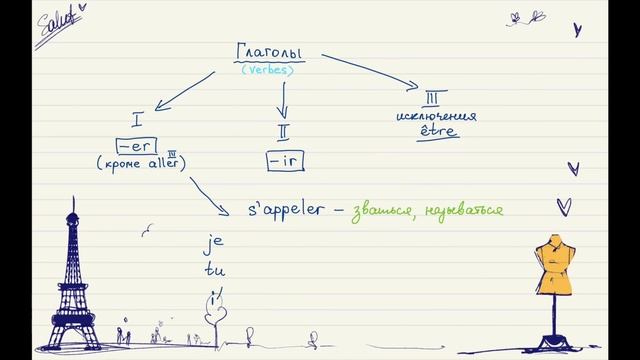 Salut
Глаголы
(verbes)
I
-er
(кроме aller)
II
-ir
III
исключения
être
s'appeler – зваться, называться
je
tu
i